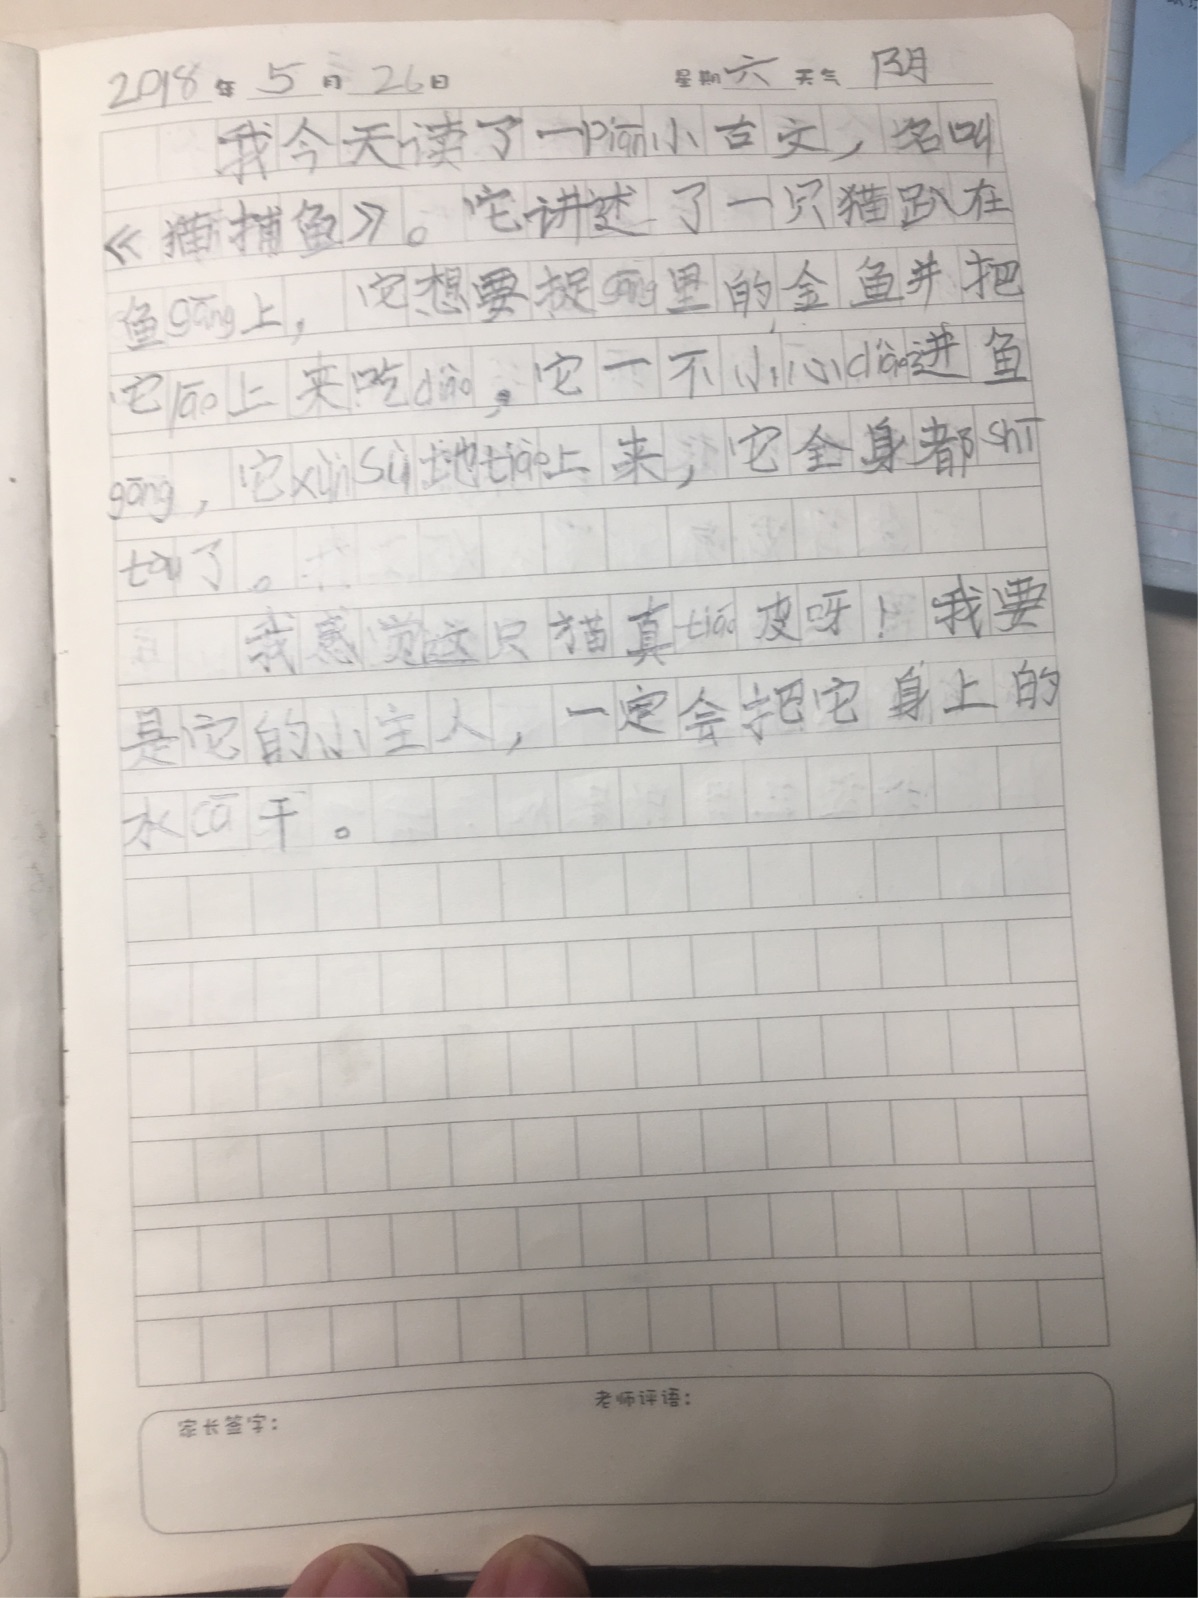 2018年5月26日 星期六 天气 阴
我今天读了一piān小古文，名叫
《猫捕鱼》。它讲述了一只猫趴在
鱼gāng上，它想要捉gāng里的金鱼并把
它lāo上来吃diào。它一不小心diào进鱼
gāng，它xùn sù地tiào上来，它全身都shī
tòu了。
我感觉这只猫真tiáo皮呀！我要
是它的小主人，一定会把它身上的
水cā干。
老师评语：
家长签字：